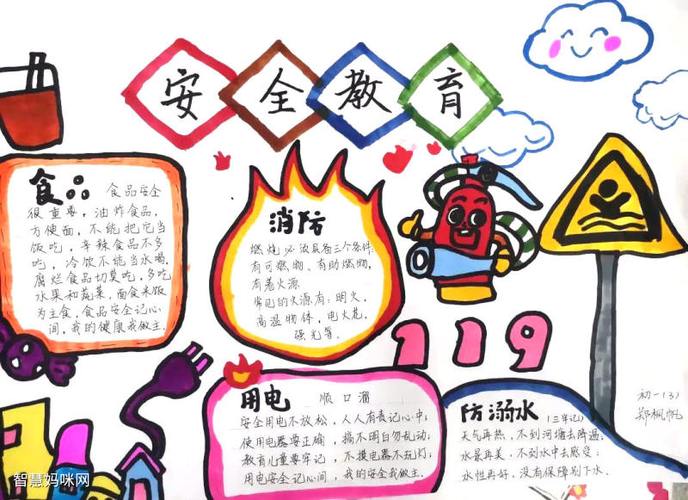 安全教育
食品 食品安全
很重要，油炸食品，
方便面，不能把它当
饭吃，辛辣食品不多
吃，冷饮不能当水喝，
腐烂食品切莫吃，多吃
水果和蔬菜，面食米饭
为主食，食品安全记心
间，我的健康我做主。
消防
燃烧必须具备三个条件：
有可燃物，有助燃物，
有着火源
常见的火源有：明火，
高温物体，电火花，
强光等。
119
用电 顺口溜
安全用电不放松，人人有责记心中；
使用电器要正确，搞不明白勿乱动；
教育儿童要牢记，不摸电器不玩灯；
用电安全记心间，我的安全我做主。
防溺水 (三牢记)
天气再热，不到河塘去降温；
水景再美，不到水中去感受；
水性再好，没有保障别下水。
初一(3)
郑枫帆
智慧妈咪网